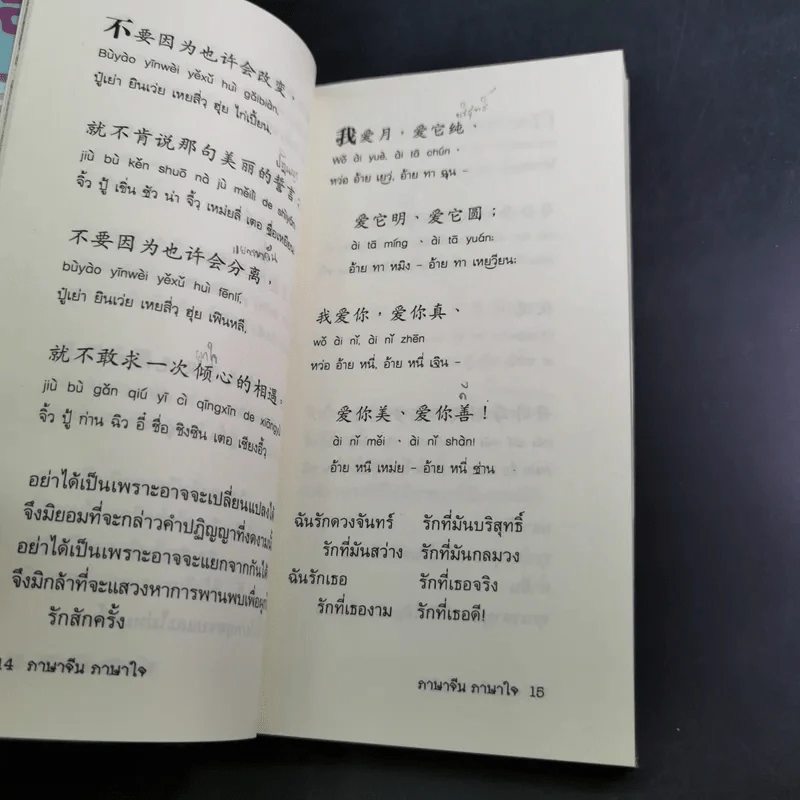 不要因为也许会改变,
Bùyào yīnwèi yěxǔ huì gǎibiàn,
ปู้เย่า ยินเว่ย เหยสี่วฺ ฮุ่ย ไก่เปี้ยน.
就不肯说那句美丽的誓言;
jiù bù kěn shuō nà jù měilì de shìyán
จิ้ว ปู้ เขิ่น ชัว น่า จิ้ว เหม่ยลี่ เตอ ชื่อเหยียน
แยกจากกัน
不要因为也许会分离,
bùyào yīnwèi yěxǔ huì fēnlí,
ปู้เย่า ยินเว่ย เหยสี่วฺ ฮุ่ย เฟินหลี.
ผูกใจ
就不敢求一次倾心的相遇。
jiù bù gǎn qiú yī cì qīngxīn de xiāngyù
จิ้ว ปู้ ก่าน ฉิว อี๋ ชื่อ ชิงซิน เตอ เชียงอิ้ว
อย่าได้เป็นเพราะอาจจะเปลี่ยนแปลงได้
จึงมิยอมที่จะกล่าวคำปฏิญญาที่งดงามนั้น
อย่าได้เป็นเพราะอาจจะแยกจากกันได้
จึงมิกล้าที่จะแสวงหาการพานพบเพื่อผูก
รักสักครั้ง
14 ภาษาจีน ภาษาใจ
บริสุทธิ์
我爱月,爱它纯、
wǒ ài yuè, ài tā chún,
หว่อ อ้าย เยวฺ่, อ้าย ทา ฉุน –
爱它明、爱它圆;
ài tā míng 、ài tā yuán;
อ้าย ทา หมิง – อ้าย ทา เหยวียน:
我爱你,爱你真、
wǒ ài nǐ, ài nǐ zhēn
หว่อ อ้าย หนี่, อ้าย หนี่ เจิน –
ดี
爱你美、爱你善!
ài nǐ měi 、ài nǐ shàn!
อ้าย หนี่ เหม่ย – อ้าย หนี่ ซ่าน
ฉันรักดวงจันทร์ รักที่มันบริสุทธิ์
รักที่มันสว่าง รักที่มันกลมวง
ฉันรักเธอ รักที่เธอจริง
รักที่เธองาม รักที่เธอดี!
ภาษาจีน ภาษาใจ 15